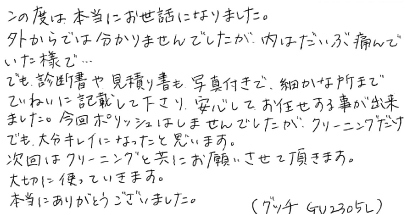 この度は本当にお世話になりました。
外からでは分かりませんでしたが、内はだいぶ痛んで
いた様で…
でも、診断書や見積り書も写真付きで、細かな所まで
ていねいに記載して下さり、安心してお任せする事が出来
ました。今回ポリッシュはしませんでしたが、クリーニングだけ
でも、大分キレイになったと思います。
次回はクリーニングと共にお願いさせて頂きます。
大切に使っていきます。
本当にありがとうございました。
(グッチ GU2305L)